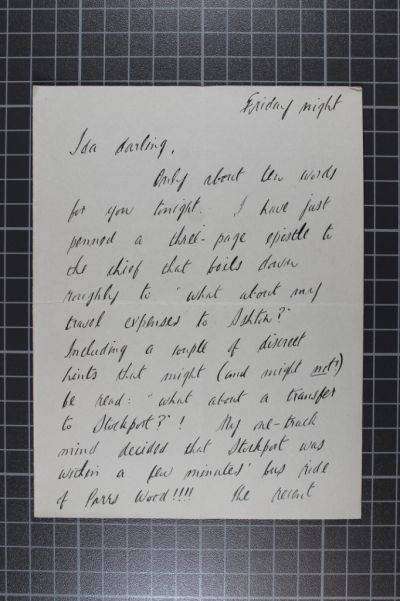 Friday night
Ida darling,
Only about ten words
for you tonight. I have just
penned a three-page epistle to
the chief that boils down
roughly to "what about my
travel expenses to Ashton?"
Including a couple of discreet
hints that might (and might not!)
be read: "what about a transfer
to Stockport?"! My one-track
mind decided that Stockport was
within a few minutes' bus ride
of Parrs Wood!!!! The recent